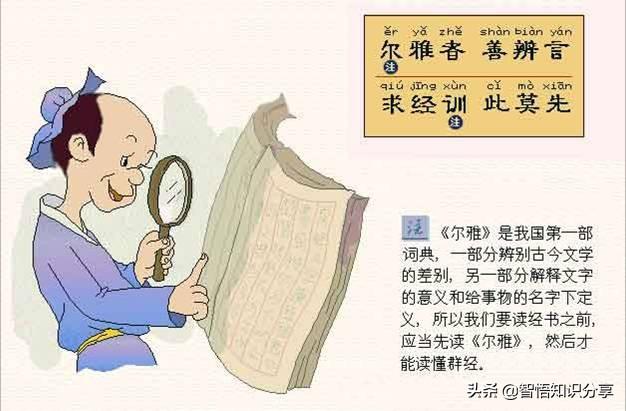 ěr yǎ zhě shàn biàn yán
尔雅者 善辨言
注
qiú jīng xùn cǐ mò xiān
求经训 此莫先
注
注 《尔雅》是我国第一部
词典，一部分辨别古今文学
的差别，另一部分解释文字
的意义和给事物的名字下定
义，所以我们要读经书之前，
应当先读《尔雅》，然后才
能读懂群经。
头条 @智悟知识分享